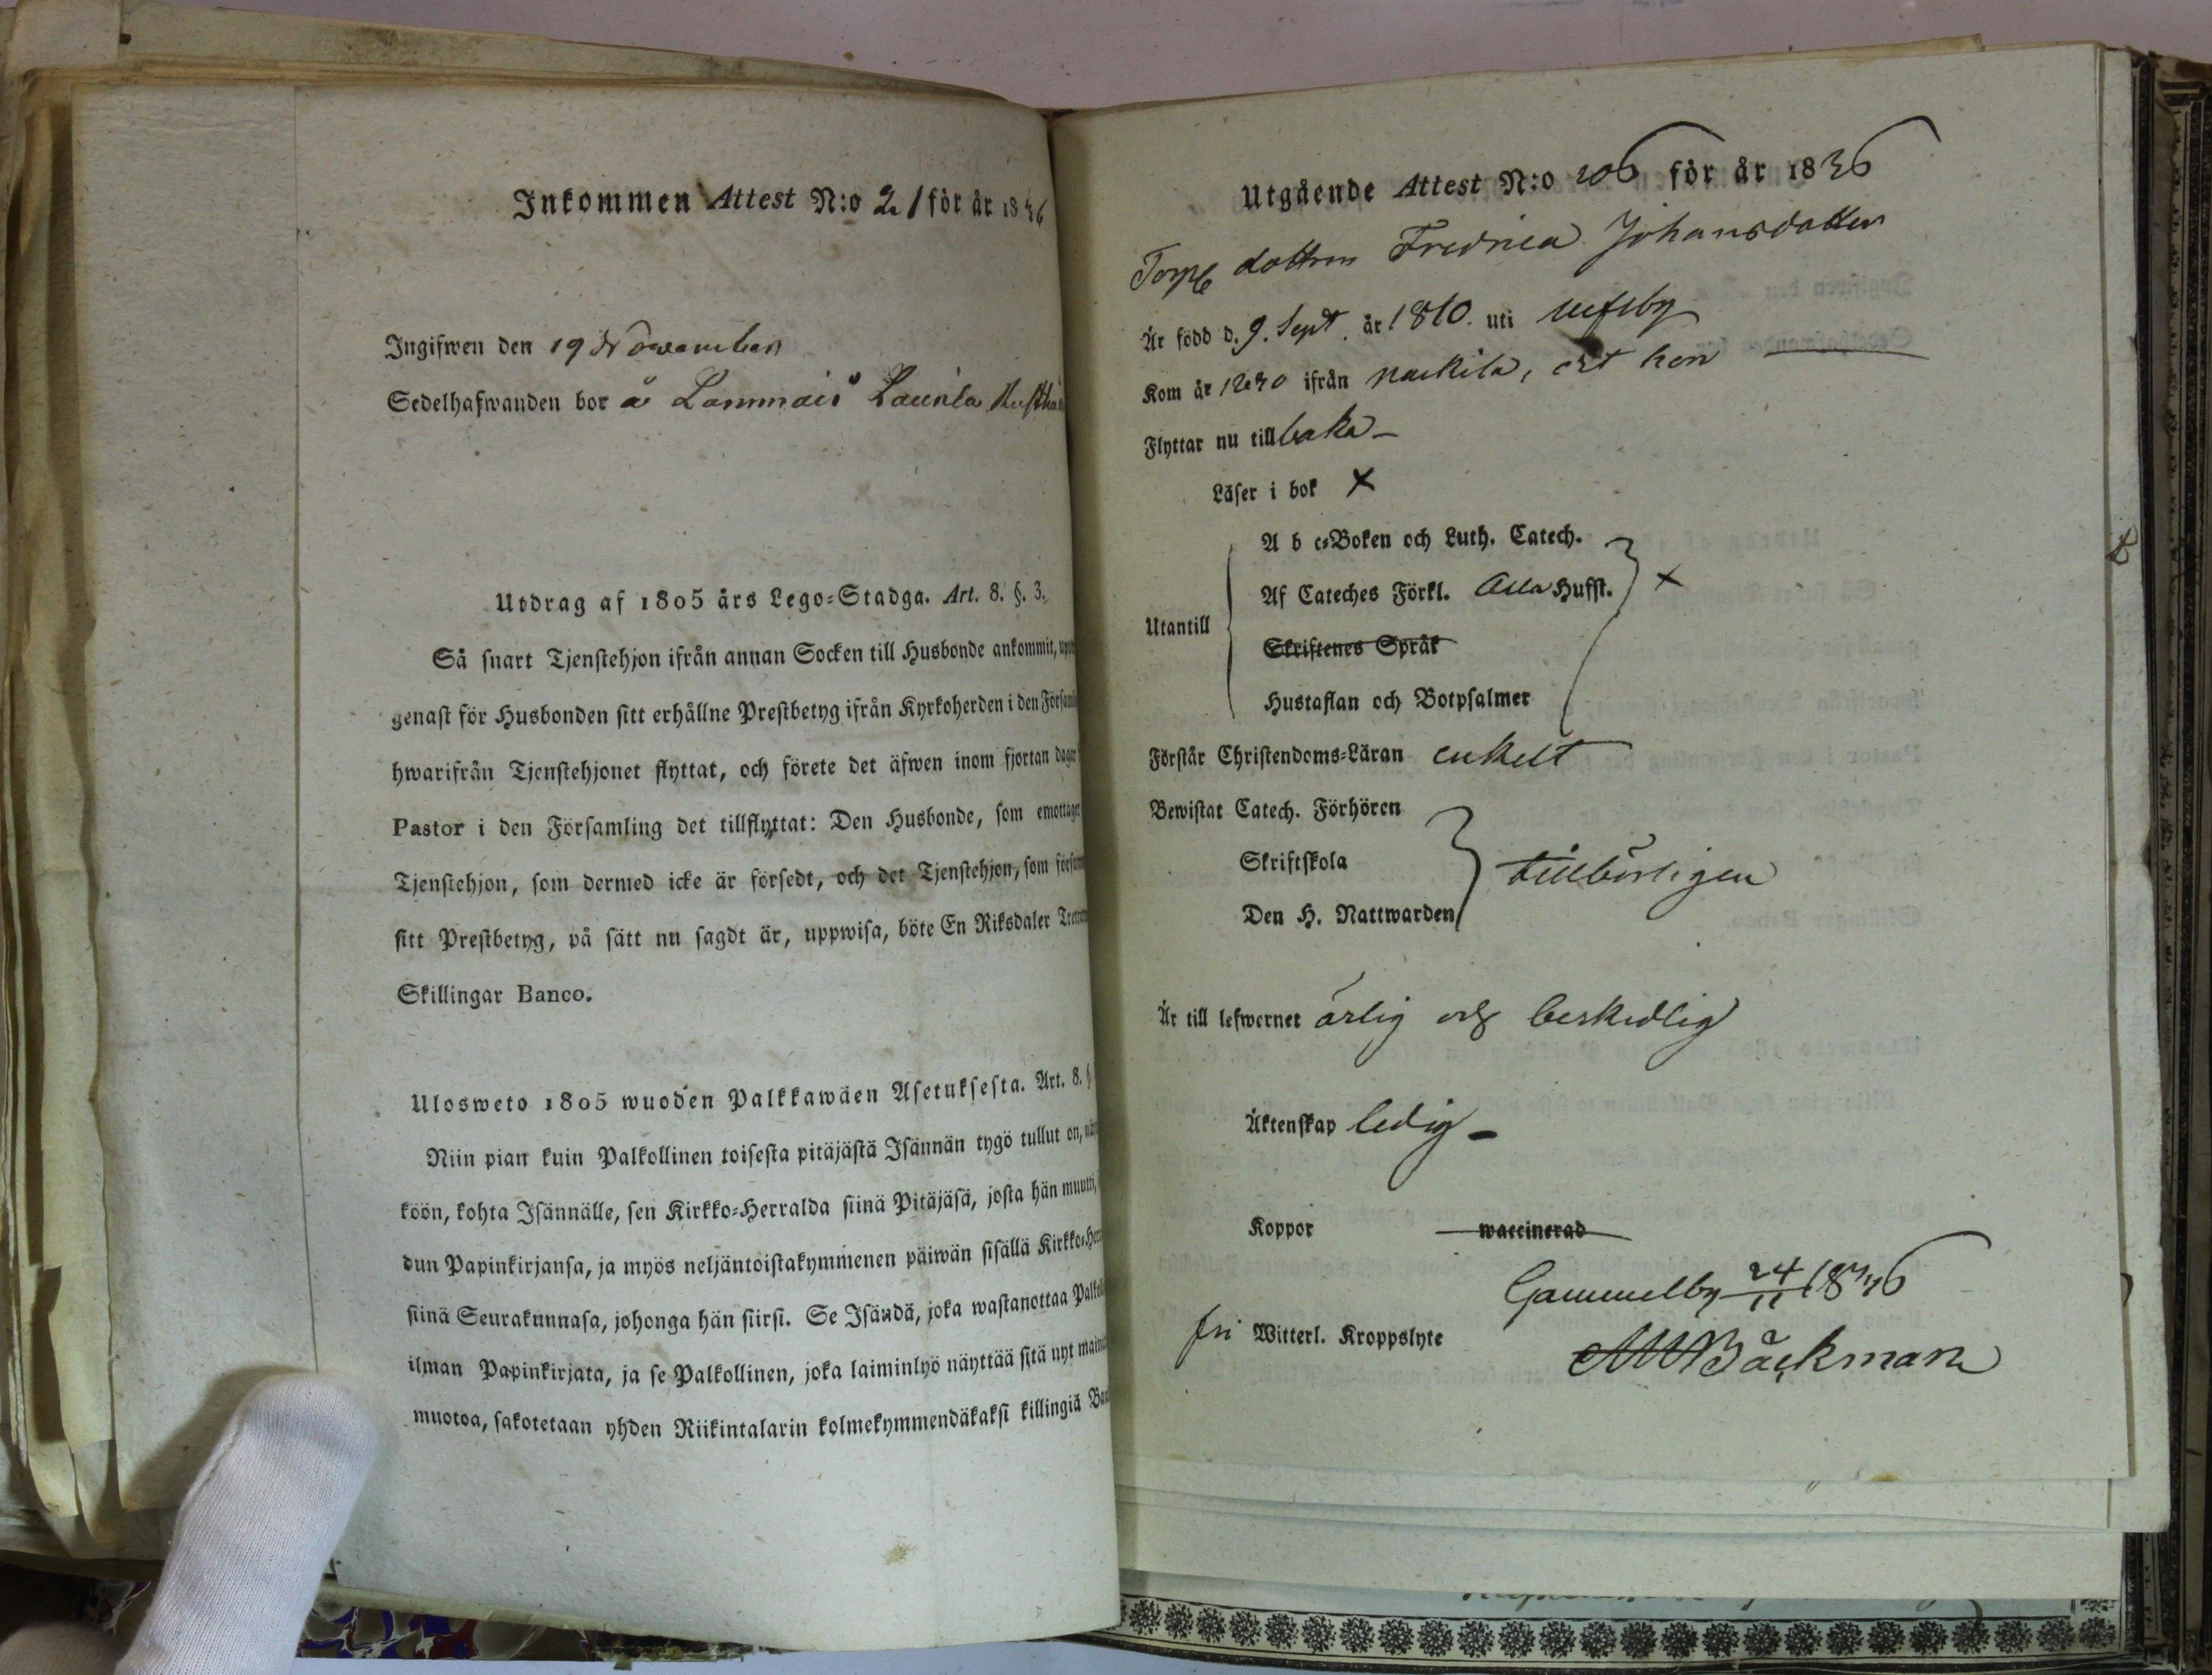 Inkommen Attest N:o 21 för år 1836
Ingifwen den 19 November
Sedelhafwanden bor å Lammais Laurila
Utdrag af 1805 års Lego-Stadga. Art. 8. §. 3.
Så snart Tjenstehjon ifrån annan Socken till Husbonde ankommit,
genast för Husbonden sitt erhållne Prestbetyg ifrån Kyrkoherden i den
hwarifrån Tjenstehjonet flyttat, och förete det äfwen inom fjortan dagar
Pastor i den Församling det tillflyttat: Den Husbonde, som emottager
Tjenstehjon, som dermed icke är försedt, och det Tjenstehjon, som
sitt Prestbetyg, på sätt nu sagdt är, uppwisa, böte En Riksdaler
Skillingar Banco.
Ulosweto 1805 wuoden Palkkawäen Asetuksesta. Art. 8. §
Niin pian kuin Palkollinen toisesta pitäjästä Isännän tygö tullut on,
köön, kohta Isännälle, sen Kirkko-Herralda siinä Pitäjäsä, josta hän muutti,
dun Papinkirjansa, ja myös neljäntoistakymmenen päiwän sisällä
siinä Seurakunnasa, johonga hän siirsi. Se Isändä, joka wastanottaa
ilman Papinkirjata, ja se Palkollinen, joka laiminlyö näyttää sitä nyt
muotoa, sakotetaan yhden Riikintalarin kolmekymmendäkaksi killingiä
Utgående Attest N:o 206 för år 1836
Torp dottren Fredrica Johansdotter
Är född d. 9. Sept. år 1810. uti Ulfsby
Kom år 1830 ifrån Nackila, dit hon
Flyttar nu tillbaka
Läser i bok X
A b c-Boken och Luth. Catech.
Af Cateches Förkl. Alla Hufst. X
Utantill
Skriftenes Språk
Hustaflan och Botpsalmer
Förstår Christendoms-Läran enkelt
Bewistat Catech. Förhören
Skriftskola
tillbörligen
Den H. Nattwarden
Är till lefwernet ärlig och beskedlig
Äktenskap ledig
Koppor waccinerad
Gammelby 24/11 1836
fri Witterl. Kroppslyte
Bäckman